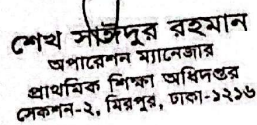 শেখ সাঈদুর রহমান
অপারেশন ম্যানেজার
প্রাথমিক শিক্ষা অধিদপ্তর
সেকশন-২, মিরপুর, ঢাকা-১২১৬